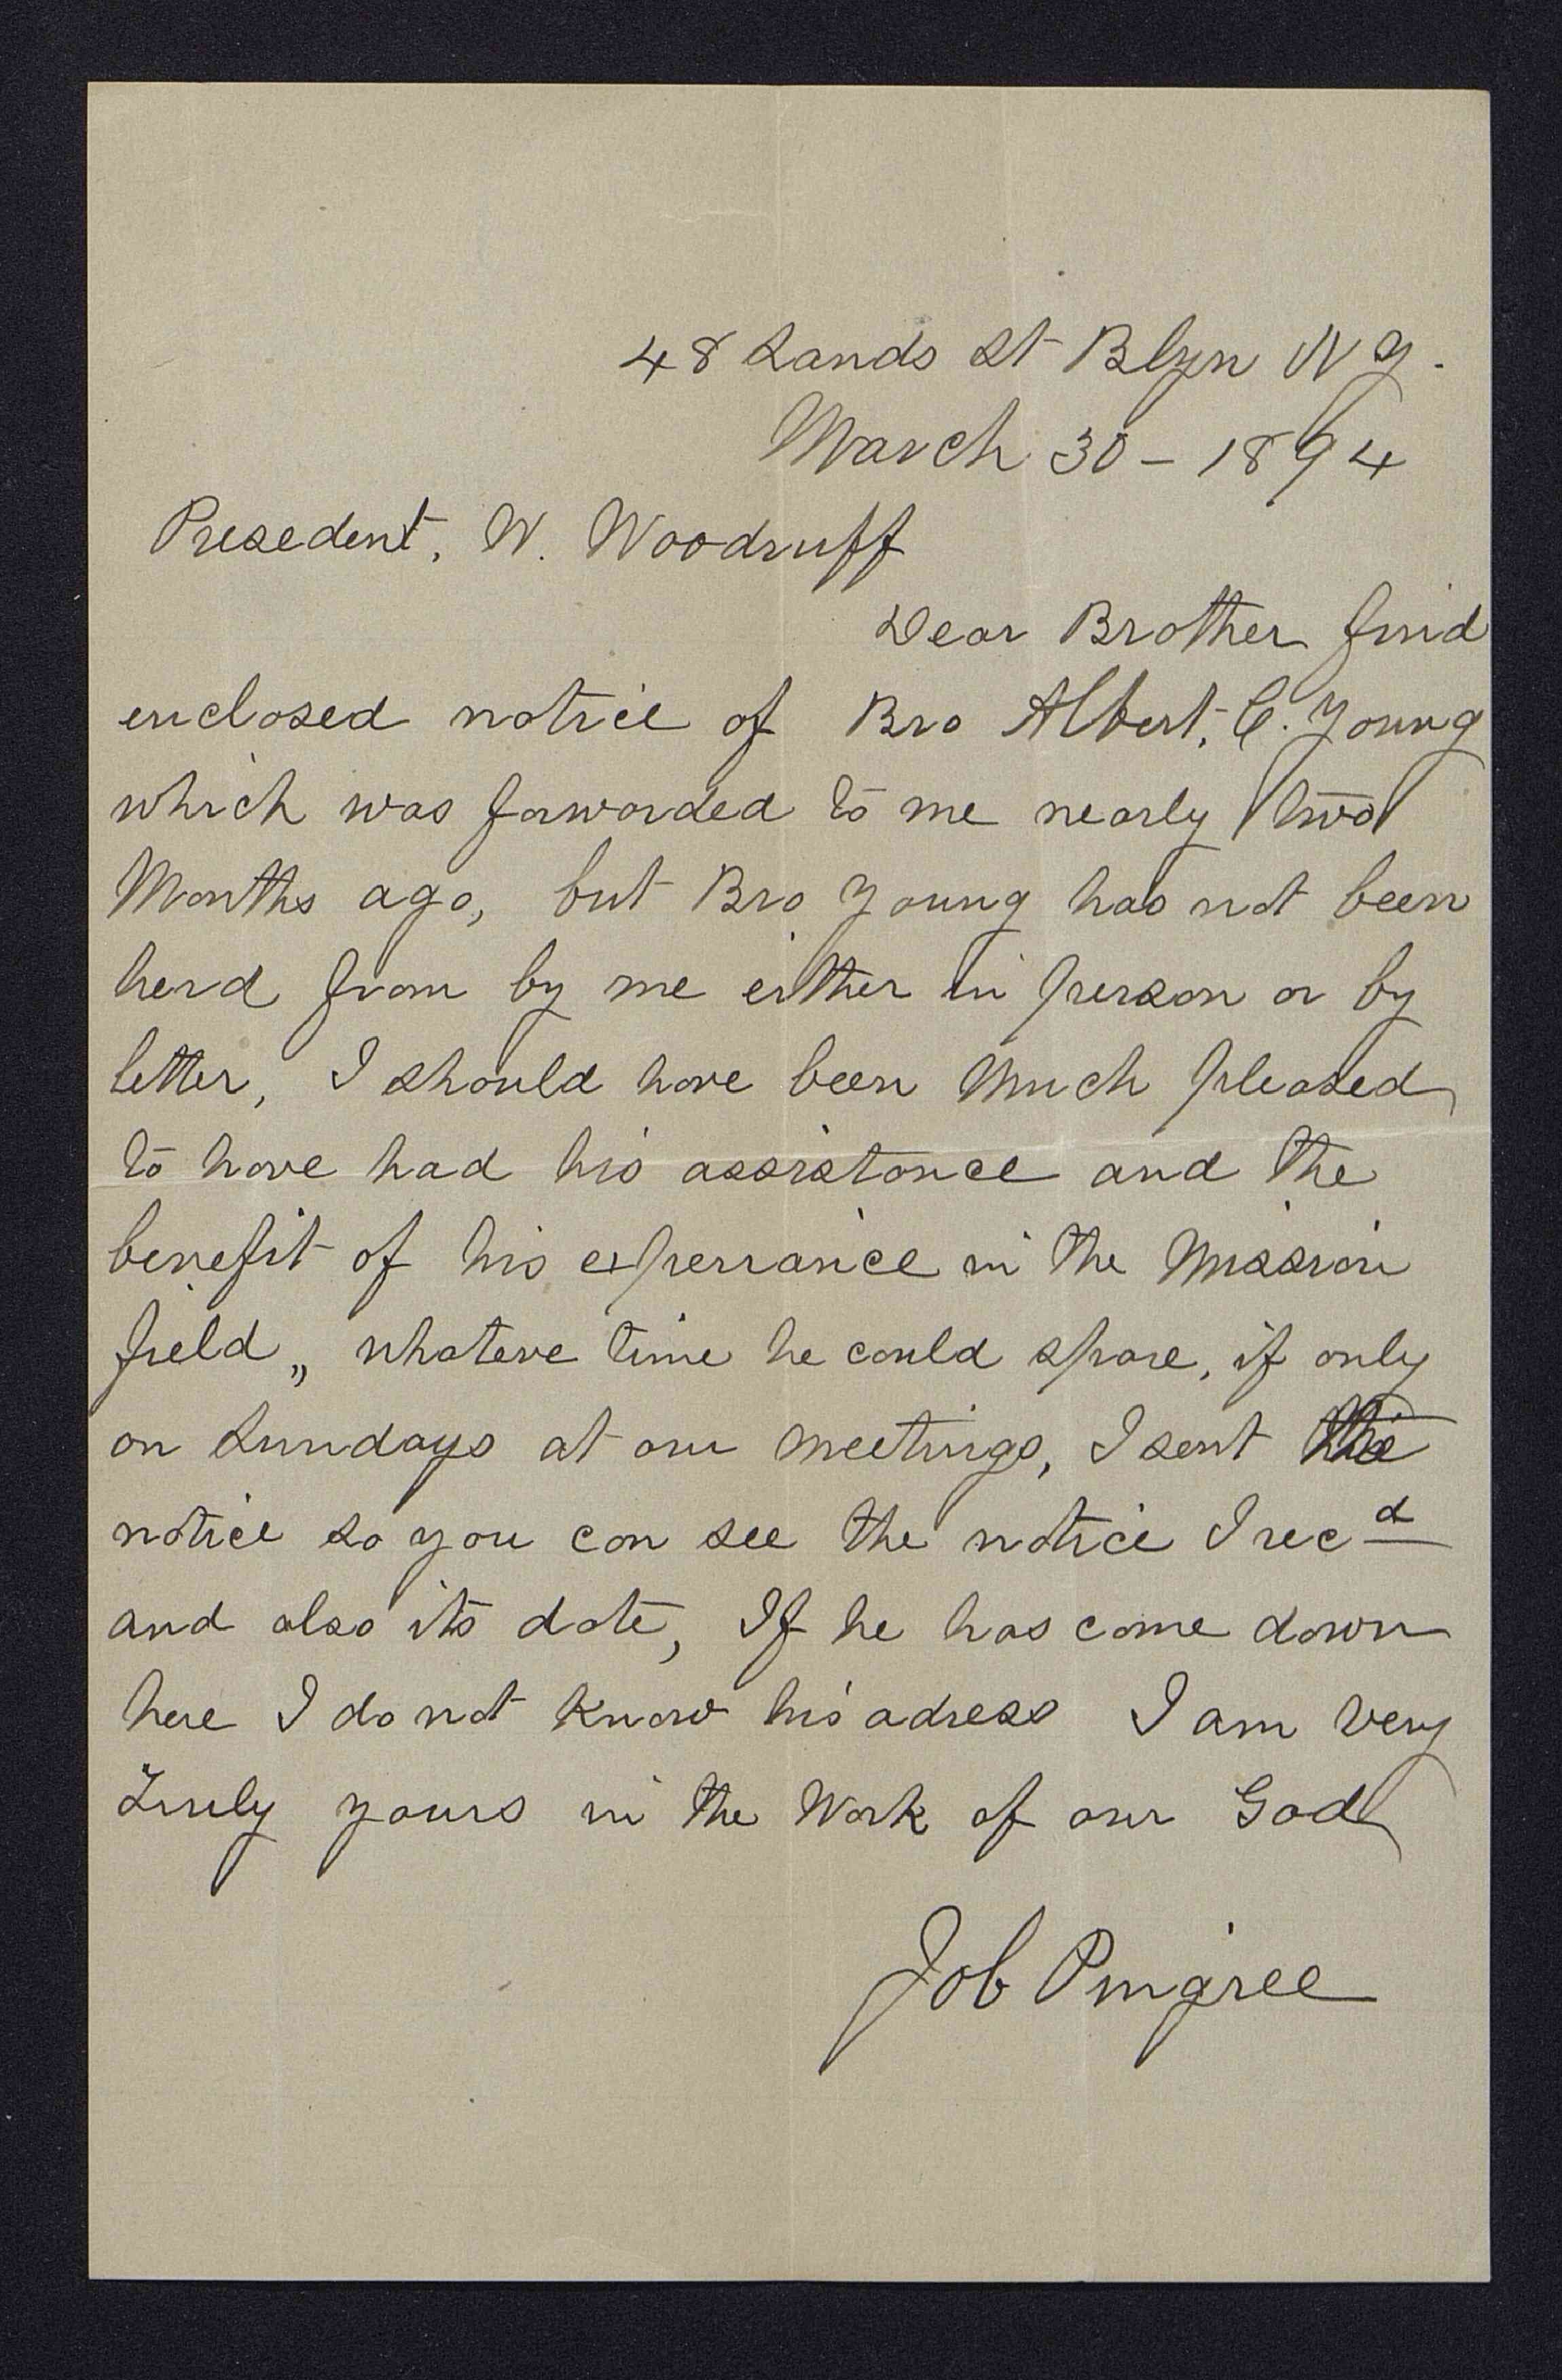 48 Sands St Blyn N Y.
March 30 - 1894
Presedent, W. Woodruff
Dear Brother find
enclosed notice of Bro Albert, C. Young
which was forwarded to me nearly two
Months ago, but Bro Young has not been
herd from by me either in person or by
letter, I should have been Much pleased
to have had his assistance and the
benefit of his experiance in the Mission
field,, whateve time he could spare, if only
on Sundays at our Meetings, I sent the
notice so you can see the notice I recd
and also its date, If he has come down
here I do not know his adress I am Very
Truly yours in the Work of our God
Job Pingree